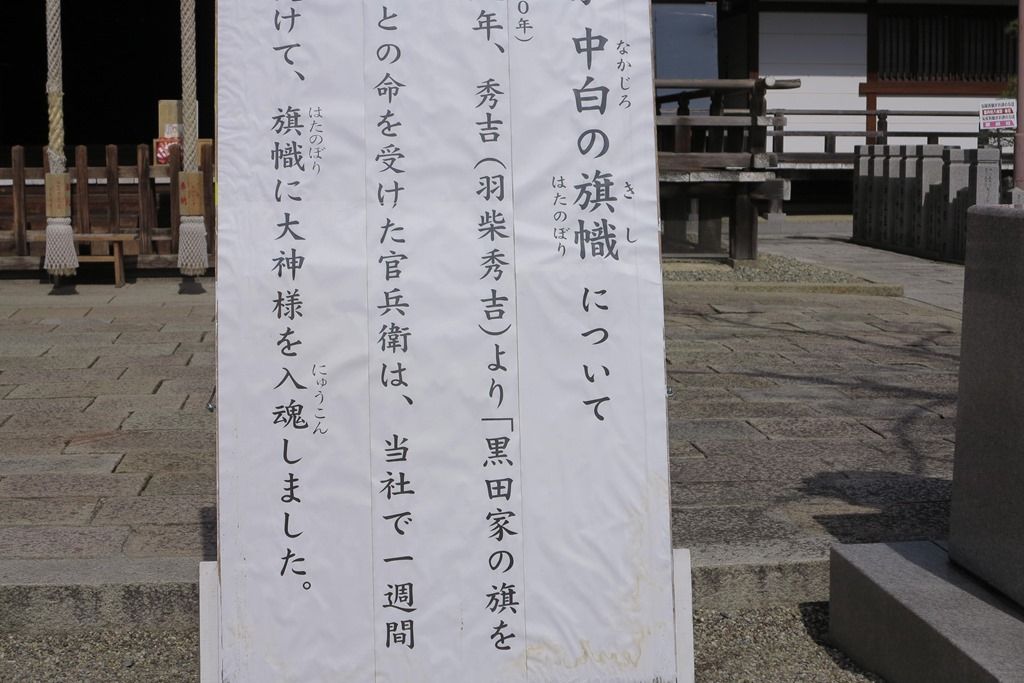 中白の旗幟について
なかじろ
きし
はたのぼり
０年）
年、秀吉（羽柴秀吉）より「黒田家の旗を
との命を受けた官兵衛は、当社で一週間
けて、旗幟に大神様を入魂しました。
はたのぼり
にゅうこん